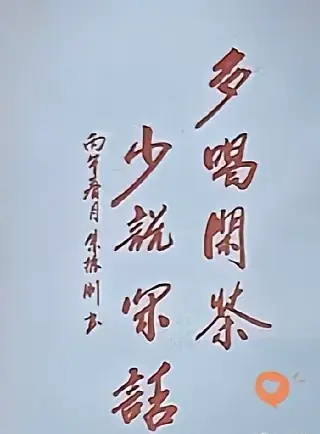 多喝閑茶
少説閑話
丙午春月朱振刚书